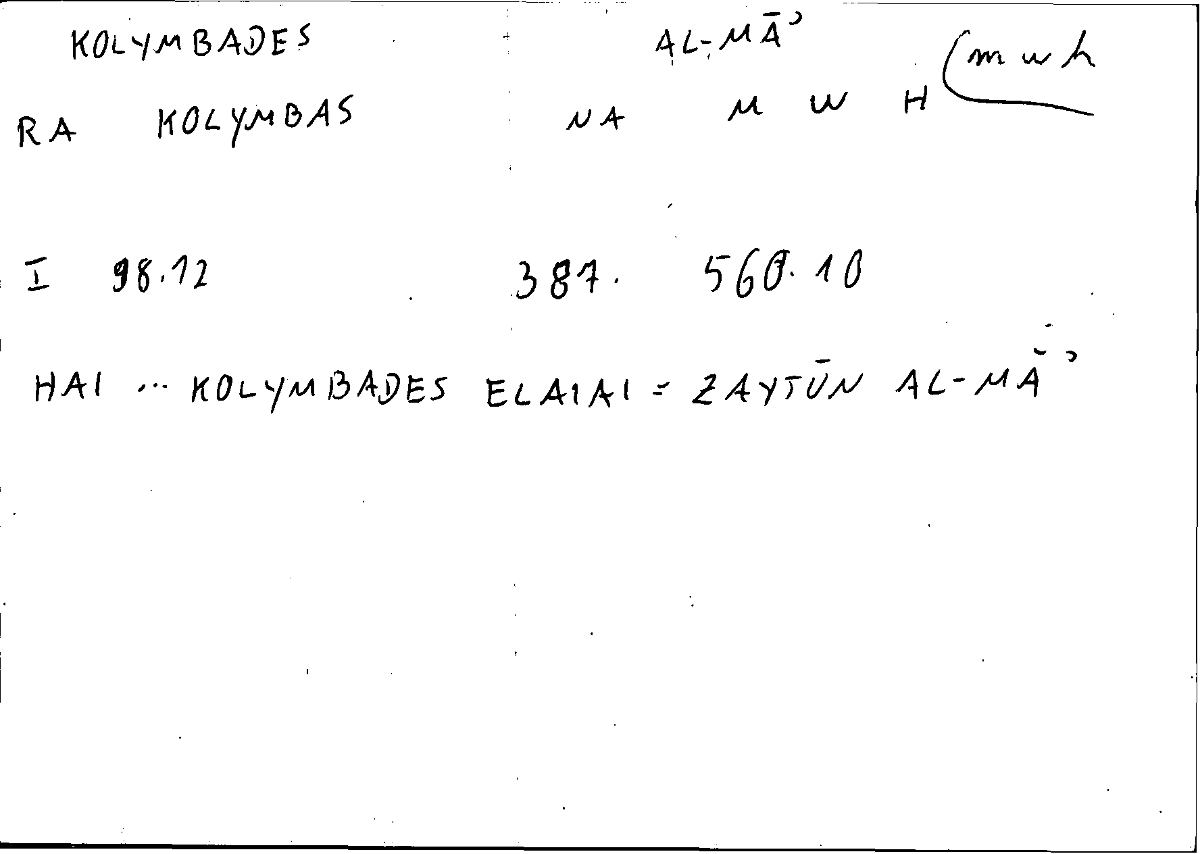 KOLYMBADES AL-MĀʾ
RA KOLYMBAS NA M W H (m w h
I 98.12 387. 560.10
HAI ... KOLYMBADES ELAIAI = ZAYTŪN AL-MĀʾ